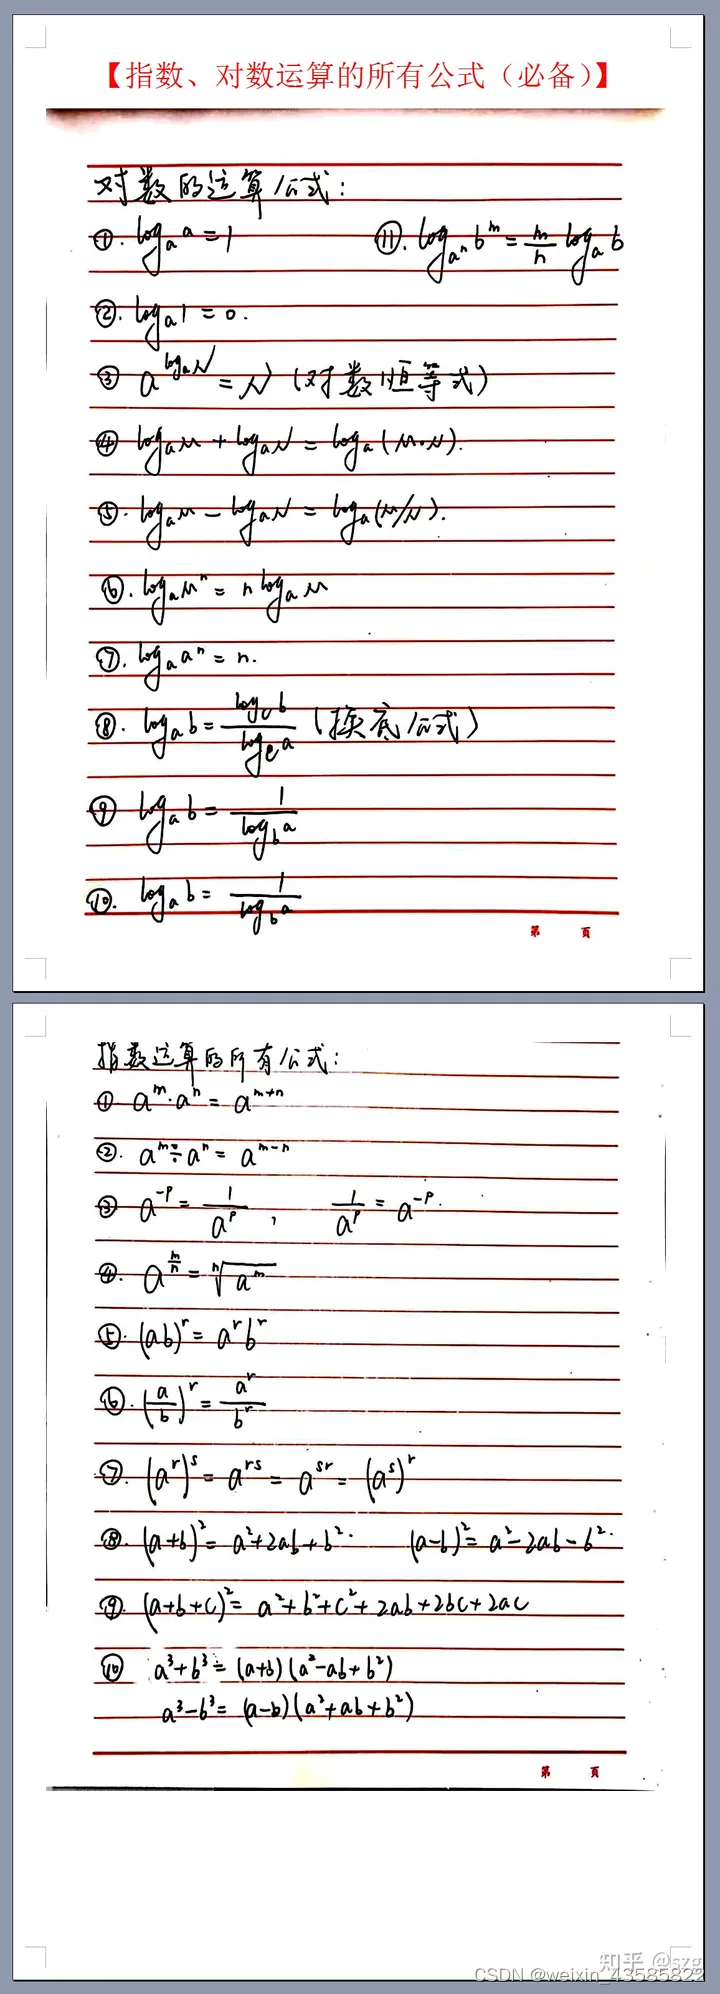 【指数、对数运算的所有公式（必备）】
对数的运算公式：
①. logₐa = 1
⑪. log_{aⁿ} bᵐ = m/n logₐb
②. logₐ1 = 0.
③ a^{logₐN} = N（对数恒等式）
④ logₐM + logₐN = logₐ(M·N).
⑤. logₐM - logₐN = logₐ(M/N).
⑥. logₐMⁿ = n logₐM
⑦. logₐaⁿ = n.
⑧. logₐb = log_c b / log_c a（换底公式）
⑨ logₐb = 1 / log_b a
⑩. logₐb = 1 / log_b a
第 页
指数运算的所有公式：
① aᵐ·aⁿ = aᵐ⁺ⁿ
②. aᵐ÷aⁿ = aᵐ⁻ⁿ
③ a⁻ᵖ = 1/aᵖ , 1/aᵖ = a⁻ᵖ.
④. a^{m/n} = ⁿ√aᵐ
⑤. (ab)ʳ = aʳbʳ
⑥. (a/b)ʳ = aʳ/bʳ
⑦. (aʳ)ˢ = aʳˢ = aˢʳ = (aˢ)ʳ
⑧. (a+b)² = a²+2ab+b². (a-b)² = a²-2ab-b².
⑨. (a+b+c)² = a²+b²+c²+2ab+2bc+2ac
⑩ a³+b³ = (a+b)(a²-ab+b²)
a³-b³ = (a-b)(a²+ab+b²)
第 页
知乎 @szg
CSDN @weixin_43585822